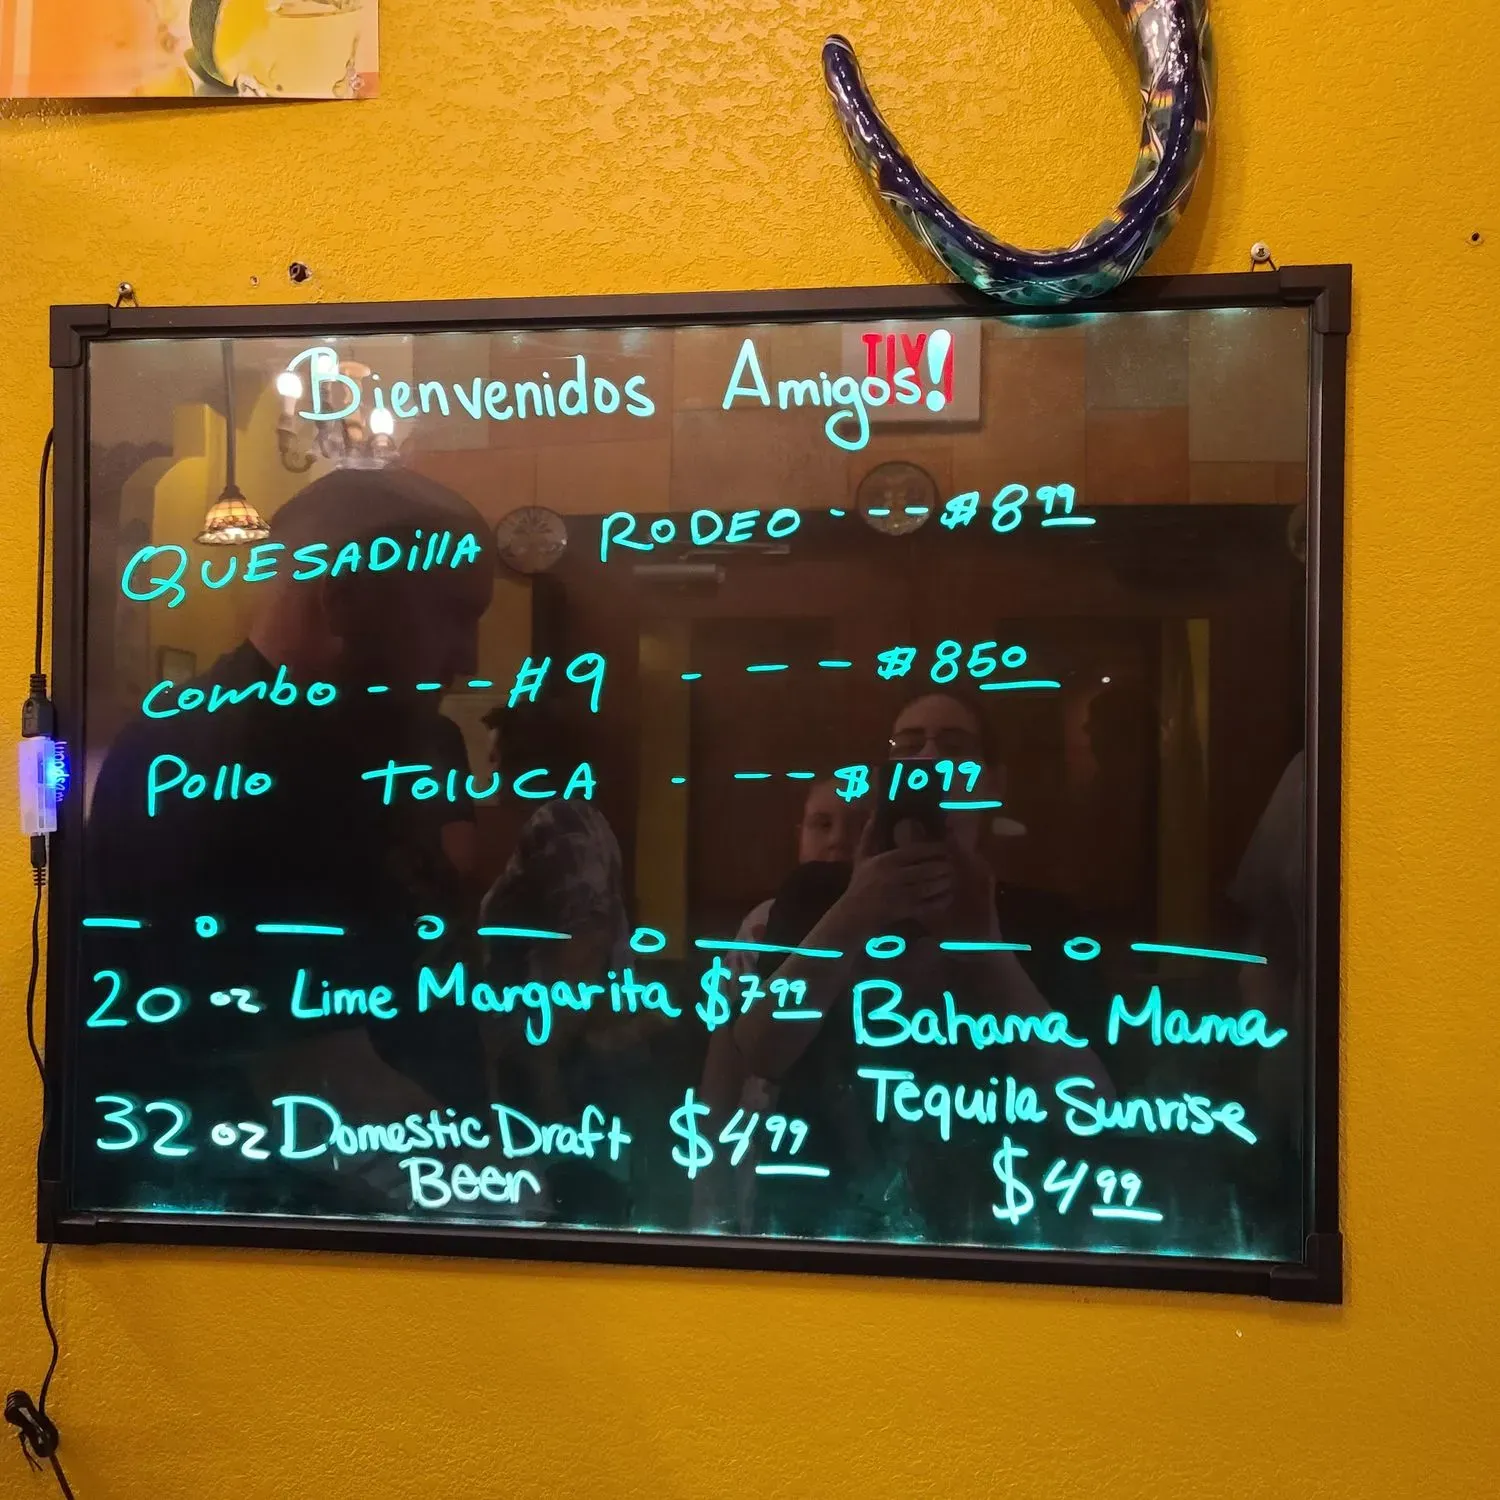 Bienvenidos Amigos!
TIX
QUESADillA RODEO - - - - $8 99
Combo - - - - #9 - - - $8 50
Pollo TOlUCA - - - $10 99
20 oz Lime Margarita $7 99
32 oz Domestic Draft Beer $4 99
Bahama Mama
Tequila Sunrise
$4 99